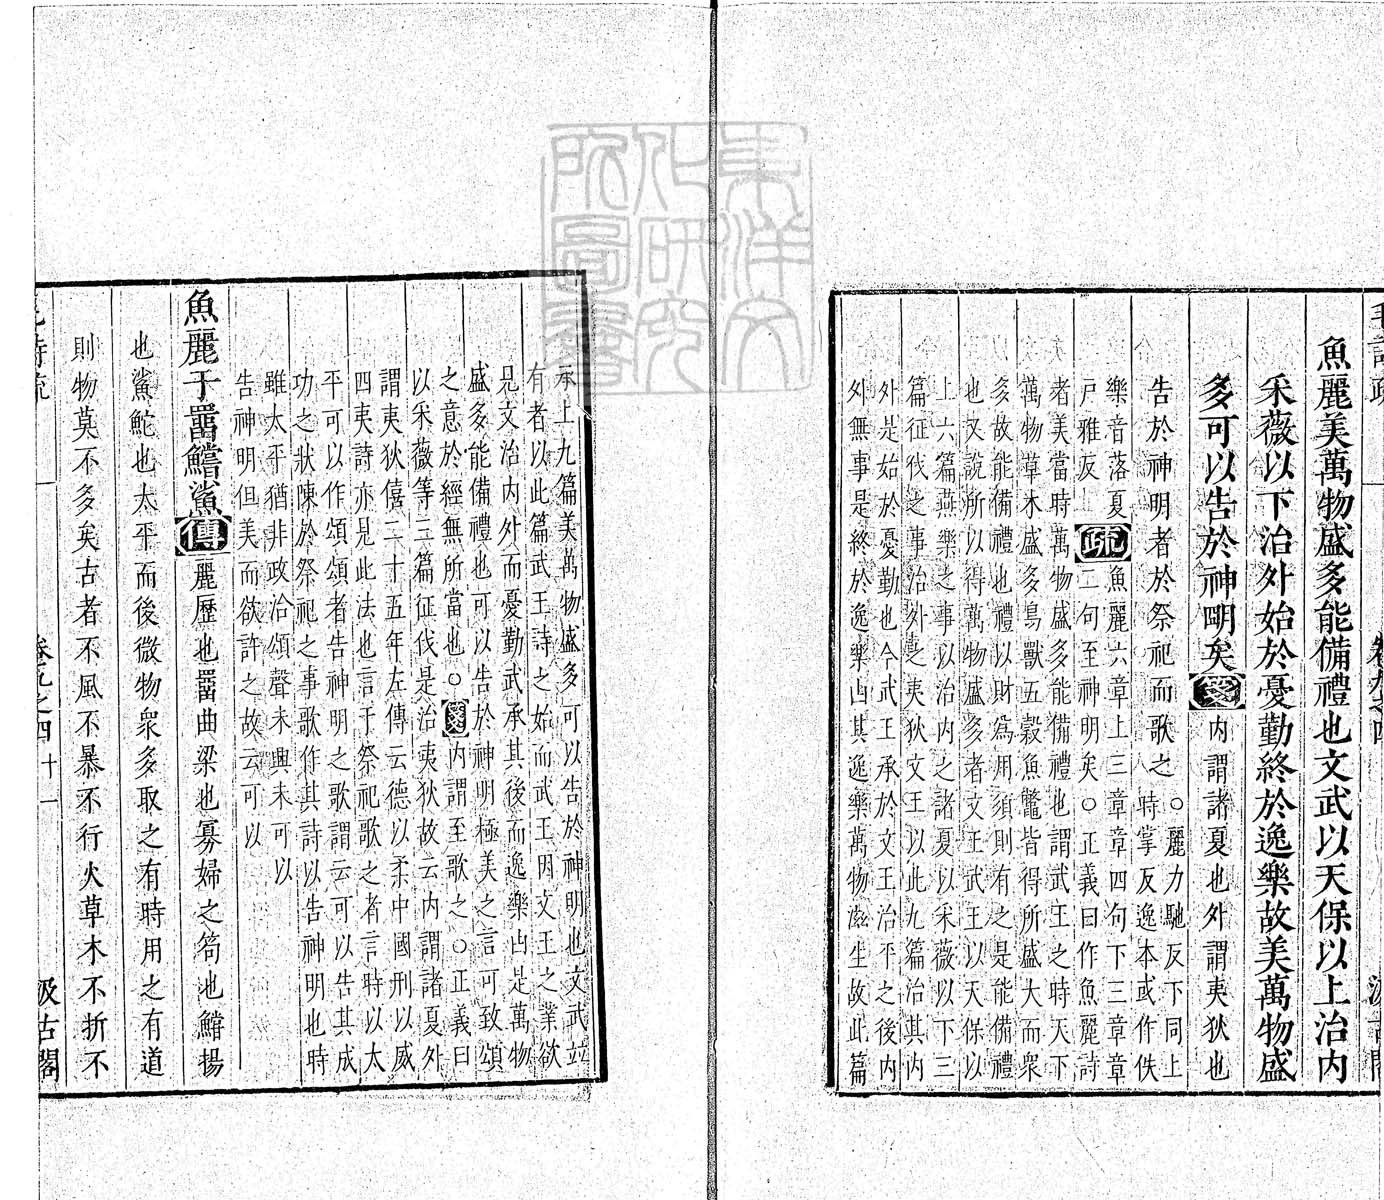 魚麗美萬物盛多能備禮也文武以天保以上治内
采薇以下治外始於憂勤終於逸樂故美萬物盛
多可以告於神明矣箋内謂諸夏也外謂夷狄也
告於神明者於祭祀而歌之○麗力馳反下同上
時掌反逸本或作佚
樂音落夏
戸雅反
疏魚麗六章上三章章四句下三章章
二句至神明矣○正義曰作魚麗詩
者美當時萬物盛多能備禮也謂武王之時天下
萬物草木盛多鳥獸五穀魚鼈皆得所盛大而衆
多故能備禮也禮以財爲用須則有之是能備禮
也又說所以得萬物盛多者文王武王以天保以
上六篇燕樂之事以治内之諸夏以采薇以下三
篇征伐之事治外之夷狄文王以此九篇治其内
外是始於憂勤也今武王承於文王治平之後内
外無事是終於逸樂由其逸樂萬物滋生故此篇
承上九篇美萬物盛多可以告於神明也文武並
有者以此篇武王詩之始而武王因文王之業欲
見文治内外而憂勤武承其後而逸樂由是萬物
盛多能備禮也可以告於神明極美之言可致頌
之意於經無所當也○箋内謂至歌之○正義曰
以采薇等三篇征伐是治夷狄故云内謂諸夏外
謂夷狄僖二十五年左傳云德以柔中國刑以威
四夷詩亦見此法也言于祭祀歌之者言時以太
平可以作頌頌者告神明之歌謂云可以告其成
功之狀陳於祭祀之事歌作其詩以告神明也時
雖太平猶非政洽頌聲未興未可以
告神明但美而欲許之故云可以
魚麗于罶鱨鯊傳麗歷也罶曲梁也寡婦之笱也鱨揚
也鯊鮀也太平而後微物衆多取之有時用之有道
則物莫不多矣古者不風不暴不行火草木不折不
卷九之四
十一
汲古閣
東洋文
化研究
所圖書